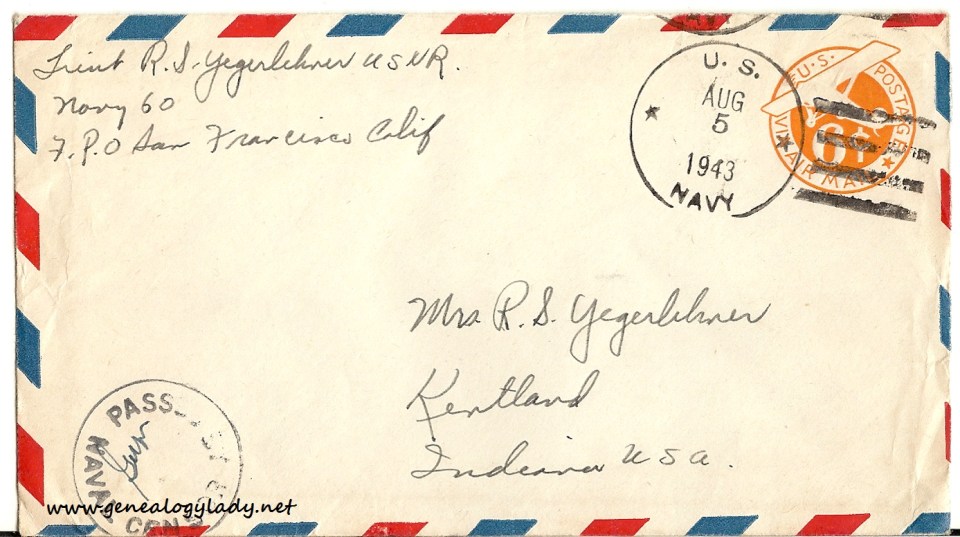 Lieut R. S. Yegerlehner USNR.
Navy 60
F.P.O San Francisco Calif
NAVY
U. S.
AUG
5
1943
NAVY
U.S. POSTAGE
6¢
VIA AIR MAIL
Mrs R. S. Yegerlehner
Kentland
Indiana USA.
PASSED BY
NAVAL CENSOR
www.genealogylady.net